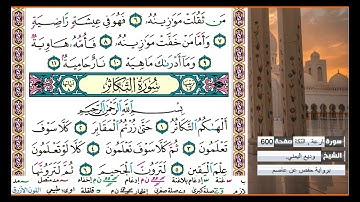 مَن ثَقُلَتْ مَوَازِينُهُ ٦ فَهُوَ فِي عِيشَةٍ رَّاضِيَةٍ
٧ وَأَمَّا مَنْ خَفَّتْ مَوَازِينُهُ ٨ فَأُمُّهُ هَاوِيَةٌ
٩ وَمَا أَدْرَاكَ مَا هِيَهْ ١٠ نَارٌ حَامِيَةٌ ١١
سُورَةُ التَّكَاثُرِ
بِسْمِ اللَّهِ الرَّحْمَٰنِ الرَّحِيمِ
أَلْهَاكُمُ التَّكَاثُرُ ١ حَتَّىٰ زُرْتُمُ الْمَقَابِرَ ٢ كَلَّا سَوْفَ
تَعْلَمُونَ ٣ ثُمَّ كَلَّا سَوْفَ تَعْلَمُونَ ٤ كَلَّا لَوْ تَعْلَمُونَ
عِلْمَ الْيَقِينِ ٥ لَتَرَوُنَّ الْجَحِيمَ ٦ ثُمَّ لَتَرَوُنَّهَا
سورة
صفحة 600
الشيخ
وديع اليمني
برواية حفص عن عاصم